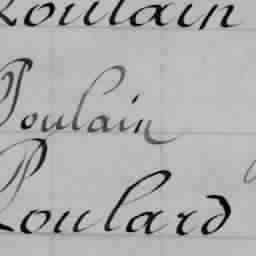 Roulain
Poulain
Poulard